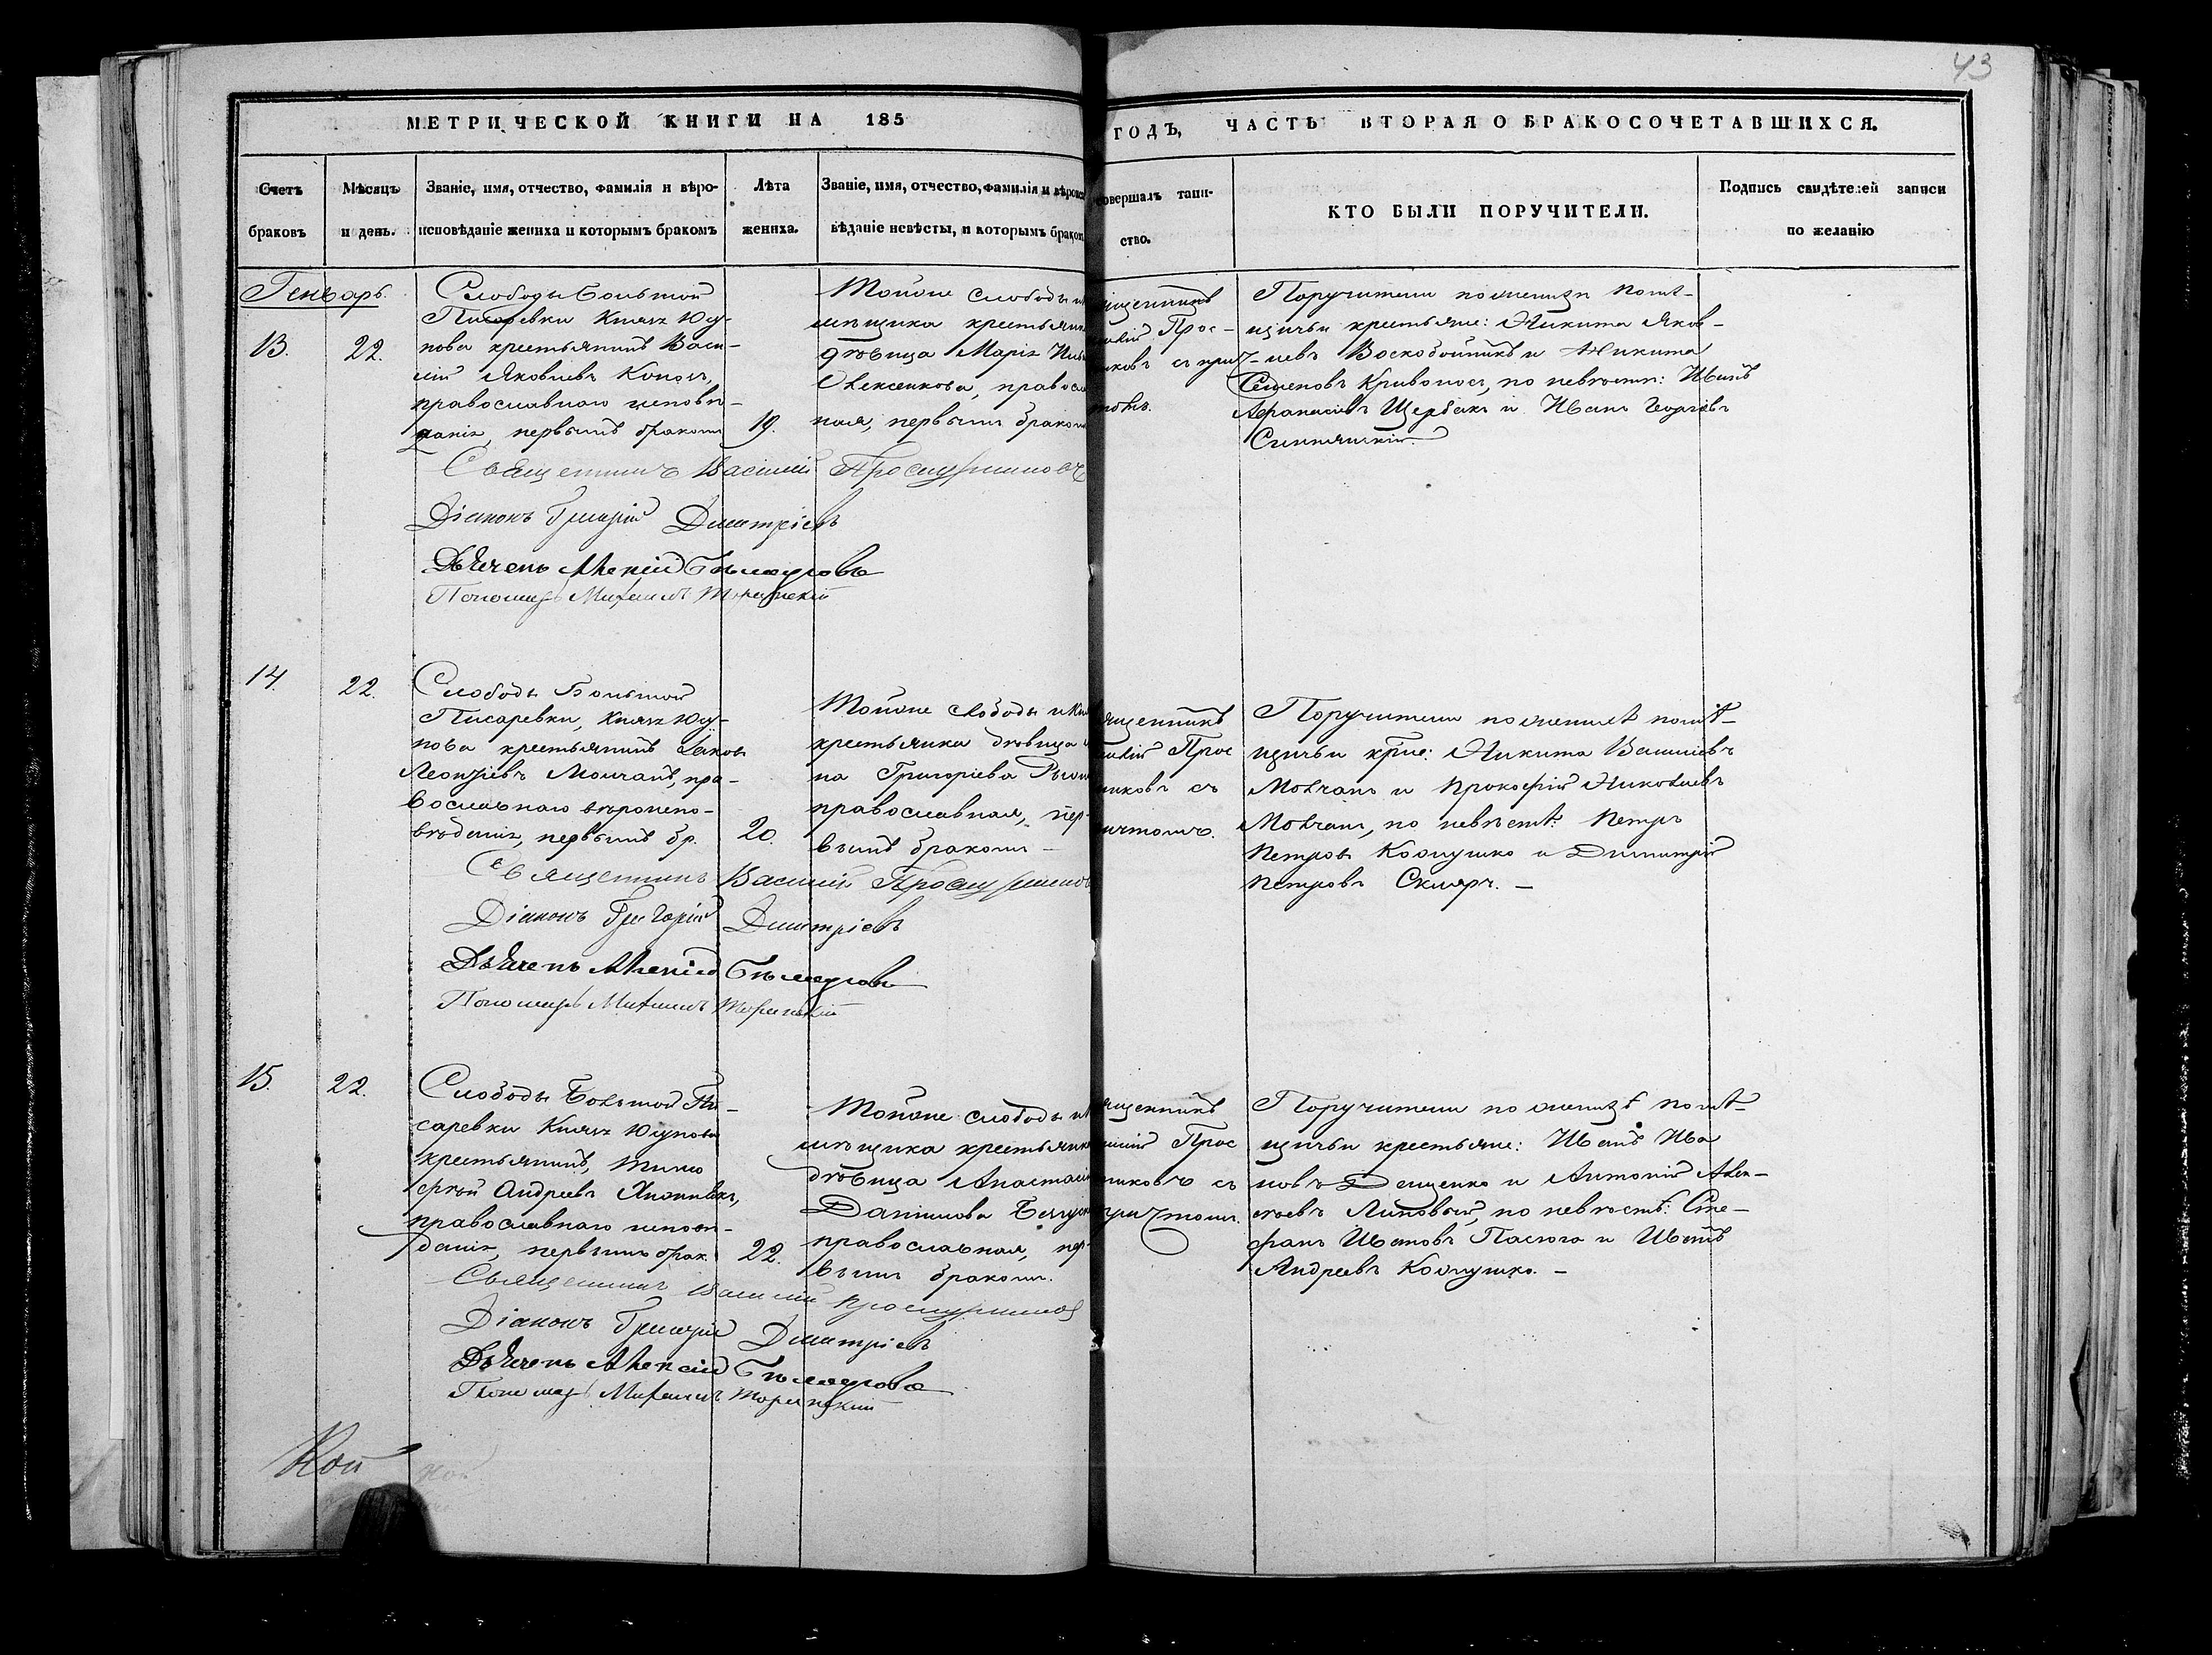 43
МЕТРИЧЕСКОЙ КНИГИ НА 185
ГОДЪ, ЧАСТЬ ВТОРАЯ О БРАКОСОЧЕТАВШИХСЯ.
Счетъ
браковъ
Мѣсяцъ
и день.
Званіе, имя, отчество, фамилія и вѣро-
исповѣданіе жениха и которымъ бракомъ
Лѣта
жениха.
Званіе, имя, отчество, фамилія и вѣроис
вѣданіе невѣсты, и которымъ браком
совершалъ таин-
ство.
КТО БЫЛИ ПОРУЧИТЕЛИ.
Подпись свидѣтелей записи
по желанію
Генварь.
13.
22.
Слободы Большой
Писаревки Князя Юсу-
пова крестьянинъ Васи-
лій Яковлевъ Конон,
православнаго исповѣ-
данія, первымъ бракомъ
19.
Тойже слободы и
мѣщика крестьянк
дѣвица Марія
Алексенкова, правосл
ная, первымъ браком
ященникъ
Прос-
иковъ съ прич-
томъ.
Поручители по женихѣ помѣ-
щичьи крестьяне: Никита Яков-
левъ Воскобойникъ и Никита
Семеновъ Кривонос, по невѣстѣ: Иванъ
Афанасіевъ Щербакъ и Иванъ Георгіевъ
Священникъ Василій Проскурниковъ
Діаконъ Григорій Дмитріевъ
Дьячекъ Алексій
Пономарь Михаилъ
14.
22.
Слободы Большой
Писаревки, Князя Юсу-
пова крестьянинъ Іаковъ
Леонтіевъ Молчанъ, пра-
вославнаго вѣроиспо-
вѣданія, первымъ бр.
20.
Тойже слободы и Кн
крестьянка дѣвица
на Григоріева
православная, пер-
вымъ бракомъ —
ященникъ
Прос
иковъ съ
ичтомъ.
Поручители по женихѣ помѣ-
щичьи кр-не: Никита Василіевъ
Молчанъ и Прокофій Николаевъ
Молчанъ, по невѣстѣ: Петръ
Петровъ Колпушко и Димитрій
Петровъ Скляръ. —
Священникъ Василій Проскурников
Діаконъ Григорій Дмитріевъ
Дьячекъ Алексій
Пономарь Михаилъ
15.
22.
Слободы Большой Пи-
саревки Князя Юсупова
крестьянинъ, Тимо
фѣй Андреевъ
православнаго исповѣ-
данія, первымъ брак.
22.
Тойже слободы и
мѣщика крестьянк
дѣвица Анастасі
Данилова
православная, пер-
вымъ бракомъ.
ященникъ
Прос
никовъ съ
причтомъ.
Поручители по женихѣ помѣ-
щичьи крестьяне: Иванъ Ива
новъ Деценко и Антоній Алек-
сѣевъ Липовый, по невѣстѣ: Сте-
фанъ Ивановъ Пасюга и Иванъ
Андреевъ Колпушко. —
Священникъ Василій Проскурников
Діаконъ Григорій Дмитріевъ
Дьячекъ Алексій
Пономарь Михаилъ